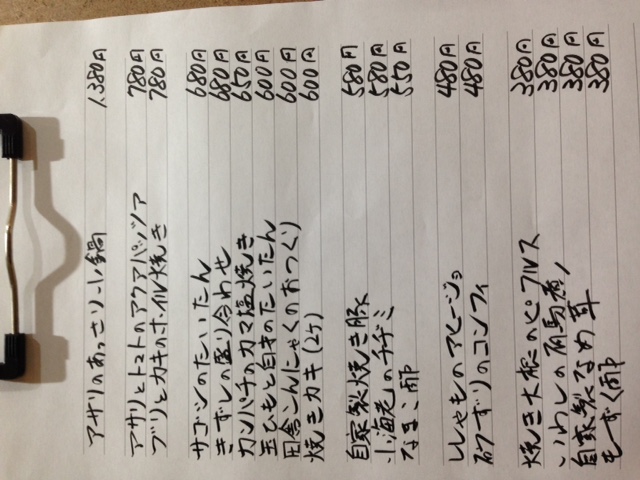 アサリのあっさり小鍋 1,380円
アサリとトマトのアクアパッツァ 780円
ブリとカキのホイル焼き 780円
サゴシのたいたん 680円
きずしの盛り合わせ 680円
カンパチのカマ塩焼き 650円
玉ひもと白才のたいたん 600円
田舎こんにゃくのおつくり 600円
焼きカキ(2ケ) 600円
自家製焼き豚 580円
小海老のチヂミ 580円
なまこ酢 550円
ししゃものアヒージョ 480円
砂ずりのコンフィ 480円
焼き大根のピクルス 380円
いわしの有馬煮 380円
自家製なめ茸 380円
もずく酢 380円